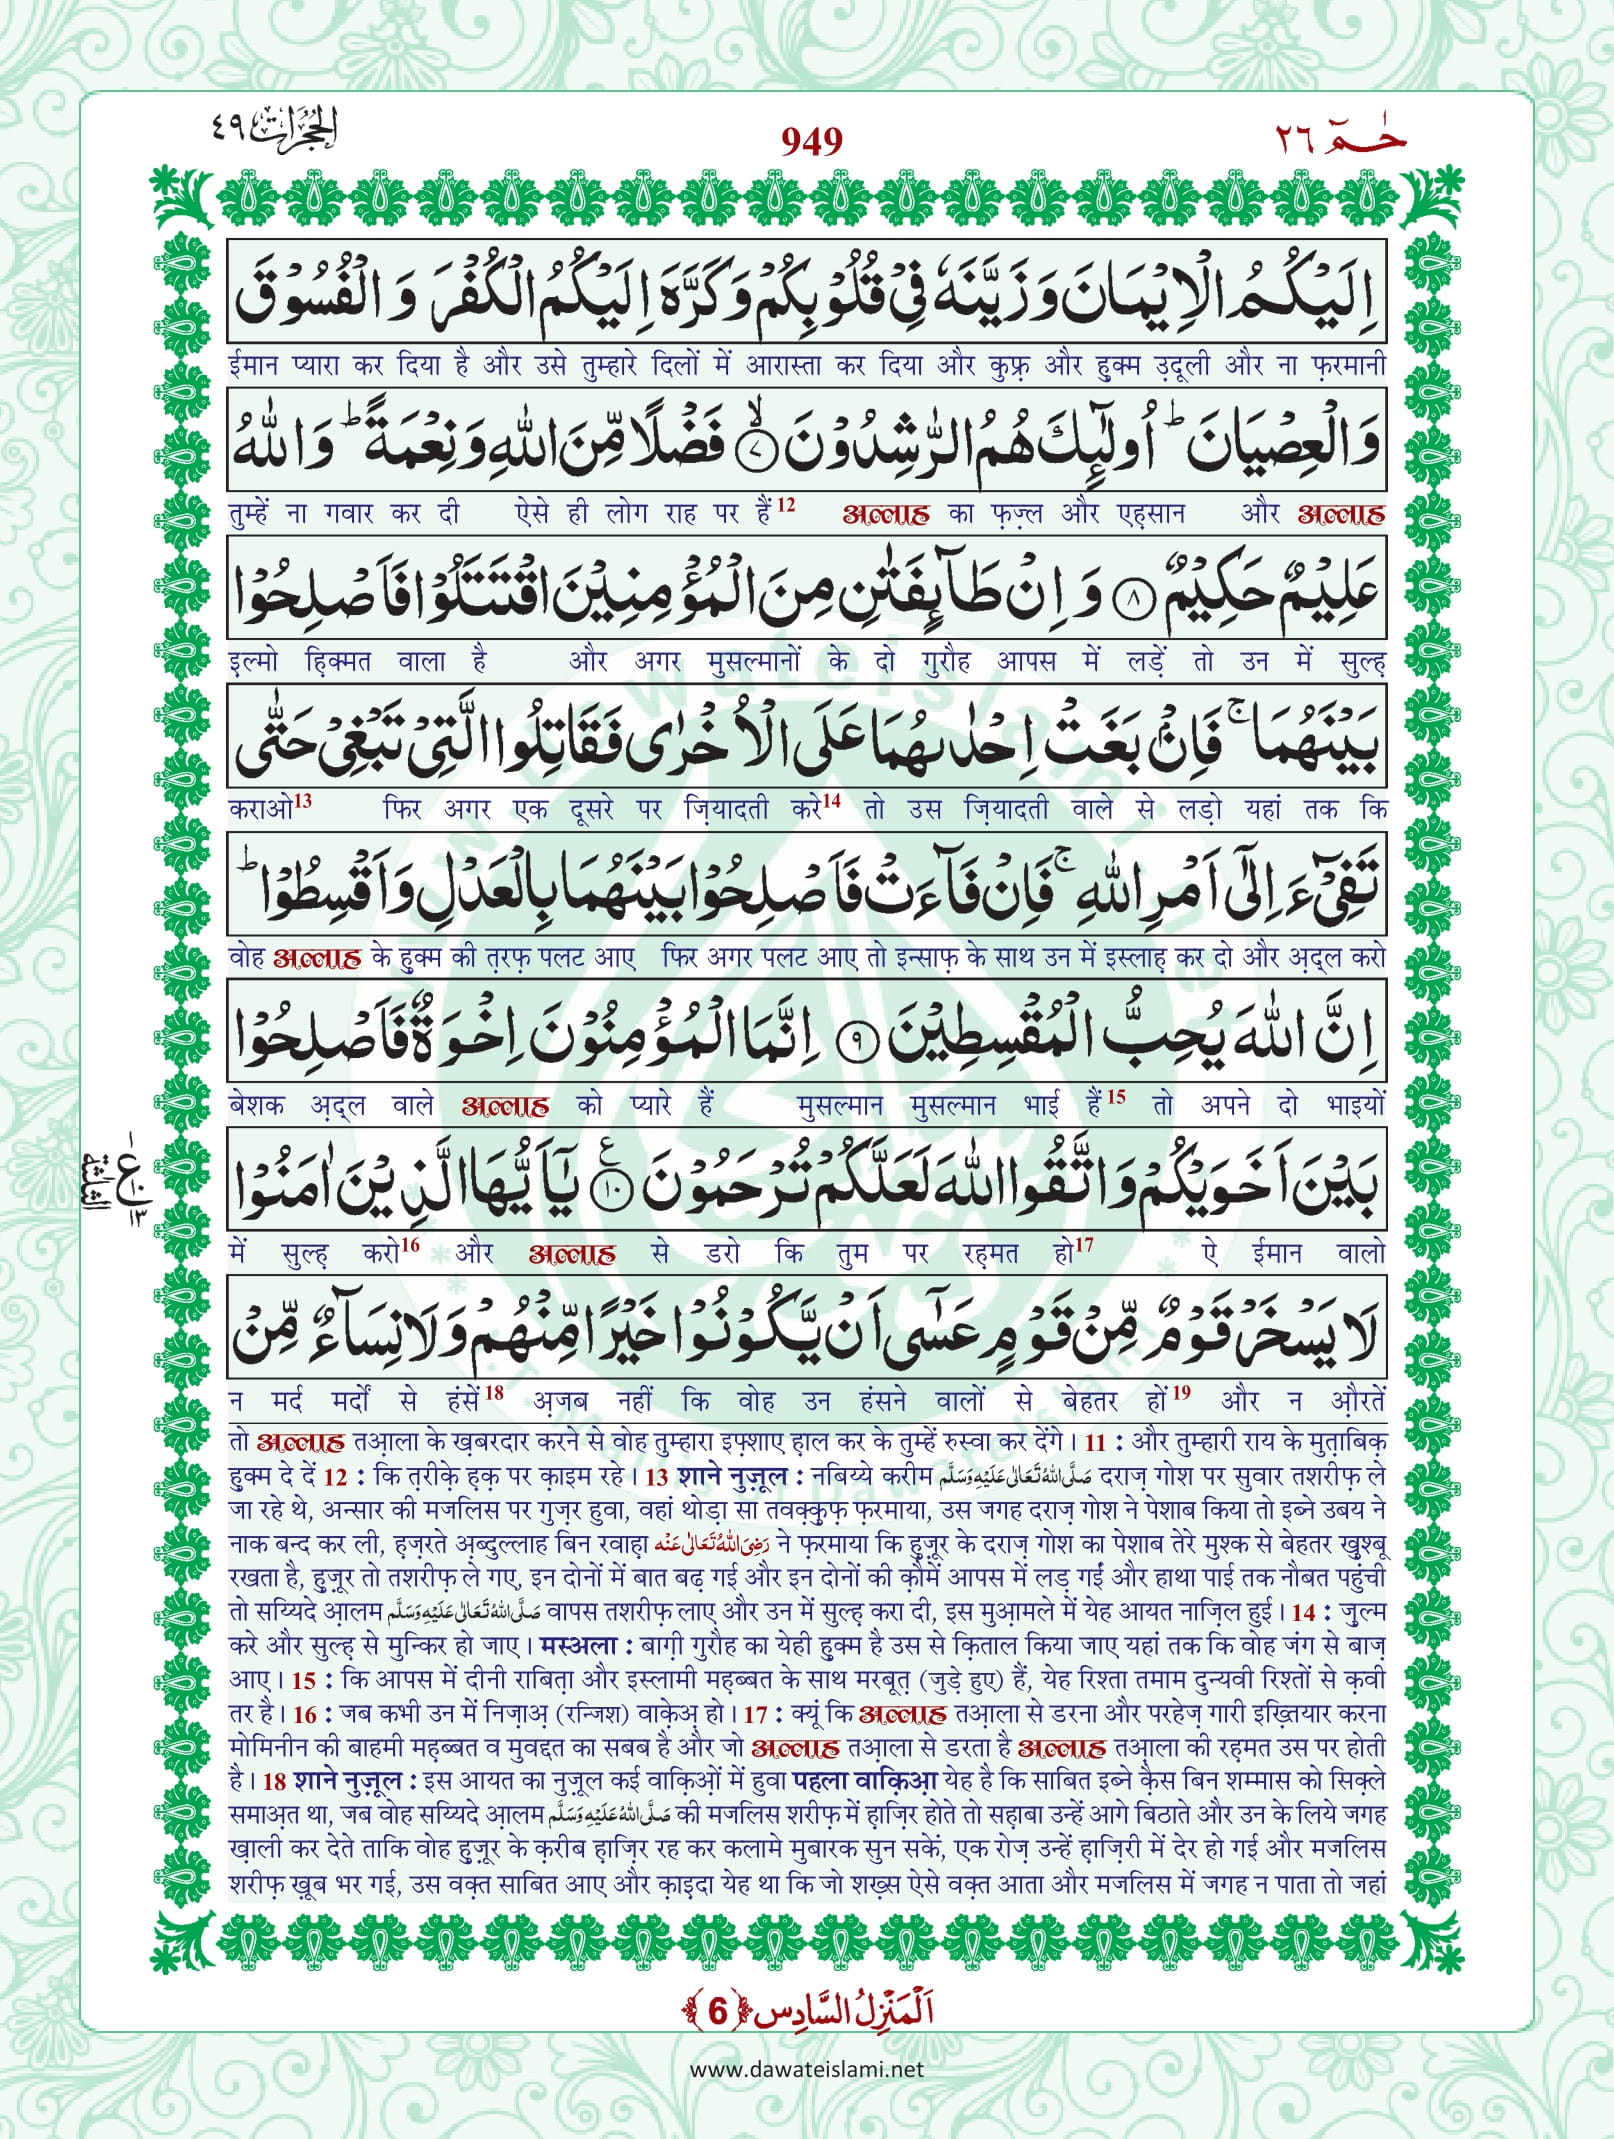 الحجرات ٤٩
949
حٰمٓ ٢٦
اِلَیْكُمُ الْاِیْمَانَ وَ زَیَّنَهٗ فِیْ قُلُوْبِكُمْ وَ كَرَّهَ اِلَیْكُمُ الْكُفْرَ وَ الْفُسُوْقَ
ईमान प्यारा कर दिया है और उसे तुम्हारे दिलों में आरास्ता कर दिया और कुफ़्र और हुक्म उ़दूली और ना फ़रमानी
وَ الْعِصْیَانَ ؕ اُولٰٓىٕكَ هُمُ الرّٰشِدُوْنَ ۙ﴿۷﴾ فَضْلًا مِّنَ اللّٰهِ وَ نِعْمَةً ؕ وَ اللّٰهُ
तुम्हें ना गवार कर दी ऐसे ही लोग राह पर हैं12 अल्लाह का फ़ज़्ल और एह़सान और अल्लाह
عَلِیْمٌ حَكِیْمٌ ﴿۸﴾ وَ اِنْ طَآىٕفَتٰنِ مِنَ الْمُؤْمِنِیْنَ اقْتَتَلُوْا فَاَصْلِحُوْا
इ़ल्मो ह़िक्मत वाला है और अगर मुसल्मानों के दो गुरौह आपस में लड़ें तो उन में सुल्ह़
بَیْنَهُمَا ۚ فَاِنْۢ بَغَتْ اِحْدٰىهُمَا عَلَى الْاُخْرٰى فَقَاتِلُوا الَّتِیْ تَبْغِیْ حَتّٰى
कराओ13 फिर अगर एक दूसरे पर ज़ियादती करे14 तो उस ज़ियादती वाले से लड़ो यहां तक कि
تَفِیْٓءَ اِلٰۤى اَمْرِ اللّٰهِ ۚ فَاِنْ فَآءَتْ فَاَصْلِحُوْا بَیْنَهُمَا بِالْعَدْلِ وَ اَقْسِطُوْا ؕ
वोह अल्लाह के हुक्म की त़रफ़ पलट आए फिर अगर पलट आए तो इन्साफ़ के साथ उन में इस्लाह़ कर दो और अ़द्ल करो
اِنَّ اللّٰهَ یُحِبُّ الْمُقْسِطِیْنَ ﴿۹﴾ اِنَّمَا الْمُؤْمِنُوْنَ اِخْوَةٌ فَاَصْلِحُوْا
बेशक अ़द्ल वाले अल्लाह को प्यारे हैं मुसल्मान मुसल्मान भाई हैं15 तो अपने दो भाइयों
بَیْنَ اَخَوَیْكُمْ وَ اتَّقُوا اللّٰهَ لَعَلَّكُمْ تُرْحَمُوْنَ ﴿۱۰﴾ ع یٰۤاَیُّهَا الَّذِیْنَ اٰمَنُوْا
में सुल्ह़ करो16 और अल्लाह से डरो कि तुम पर रह़मत हो17 ऐ ईमान वालो
لَا یَسْخَرْ قَوْمٌ مِّنْ قَوْمٍ عَسٰۤى اَنْ یَّكُوْنُوْا خَیْرًا مِّنْهُمْ وَ لَا نِسَآءٌ مِّنْ
न मर्द मर्दों से हंसें18 अ़जब नहीं कि वोह उन हंसने वालों से बेहतर हों19 और न औ़रतें
तो अल्लाह तआ़ला के ख़बरदार करने से वोह तुम्हारा इफ़्शाए ह़ाल कर के तुम्हें रुस्वा कर देंगे। 11 : और तुम्हारी राय के मुत़ाबिक़
हुक्म दे दें 12 : कि त़रीके़ ह़क़ पर क़ाइम रहे। 13 शाने नुज़ूल : नबिय्ये करीम صَلَّى اللهُ تَعَالٰى عَلَيْهِ وَسَلَّم दराज़ गोश पर सुवार तशरीफ़ ले
जा रहे थे, अन्सार की मजलिस पर गुज़र हुवा, वहां थोड़ा सा तवक़्क़ुफ़ फ़रमाया, उस जगह दराज़ गोश ने पेशाब किया तो इब्ने उबय ने
नाक बन्द कर ली, ह़ज़रते अ़ब्दुल्लाह बिन रवाह़ा رَضِىَ اللهُ تَعَالٰى عَنْه ने फ़रमाया कि हु़ज़ूर के दराज़ गोश का पेशाब तेरे मुश्क से बेहतर ख़ुश्बू
रखता है, हु़ज़ूर तो तशरीफ़ ले गए, इन दोनों में बात बढ़ गई और इन दोनों की क़ौमें आपस में लड़ गईं और हाथा पाई तक नौबत पहुंची
तो सय्यिदे आ़लम صَلَّى اللهُ تَعَالٰى عَلَيْهِ وَسَلَّم वापस तशरीफ़ लाए और उन में सुल्ह़ करा दी, इस मुआ़मले में येह आयत नाज़िल हुई। 14 : ज़ुल्म
करे और सुल्ह़ से मुन्किर हो जाए। मस्अला : बाग़ी गुरौह का येही हुक्म है उस से क़िताल किया जाए यहां तक कि वोह जंग से बाज़
आए। 15 : कि आपस में दीनी राबित़ा और इस्लामी मह़ब्बत के साथ मरबूत़ (जुड़े हुए) हैं, येह रिश्ता तमाम दुन्यवी रिश्तों से क़वी
तर है। 16 : जब कभी उन में निज़ाअ़ (रन्जिश) वाके़अ़ हो। 17 : क्यूं कि अल्लाह तआ़ला से डरना और परहेज़ गारी इख़्तियार करना
मोमिनीन की बाहमी मह़ब्बत व मुवद्दत का सबब है और जो अल्लाह तआ़ला से डरता है अल्लाह तआ़ला की रह़मत उस पर होती
है। 18 शाने नुज़ूल : इस आयत का नुज़ूल कई वाक़िओ़ं में हुवा पहला वाक़िआ़ येह है कि साबित इब्ने क़ैस बिन शम्मास को सिक़्ले
समाअ़त था, जब वोह सय्यिदे आ़लम صَلَّى اللهُ عَلَيْهِ وَسَلَّم की मजलिस शरीफ़ में ह़ाज़िर होते तो सह़ाबा उन्हें आगे बिठाते और उन के लिये जगह
ख़ाली कर देते ताकि वोह हु़ज़ूर के क़रीब ह़ाज़िर रह कर कलामे मुबारक सुन सकें, एक रोज़ उन्हें ह़ाज़िरी में देर हो गई और मजलिस
शरीफ़ ख़ूब भर गई, उस वक़्त साबित आए और क़ाइ़दा येह था कि जो शख़्स ऐसे वक़्त आता और मजलिस में जगह न पाता तो जहां
اَلْمَنْزِلُ السَّادِس ﴿6﴾
www.dawateislami.net